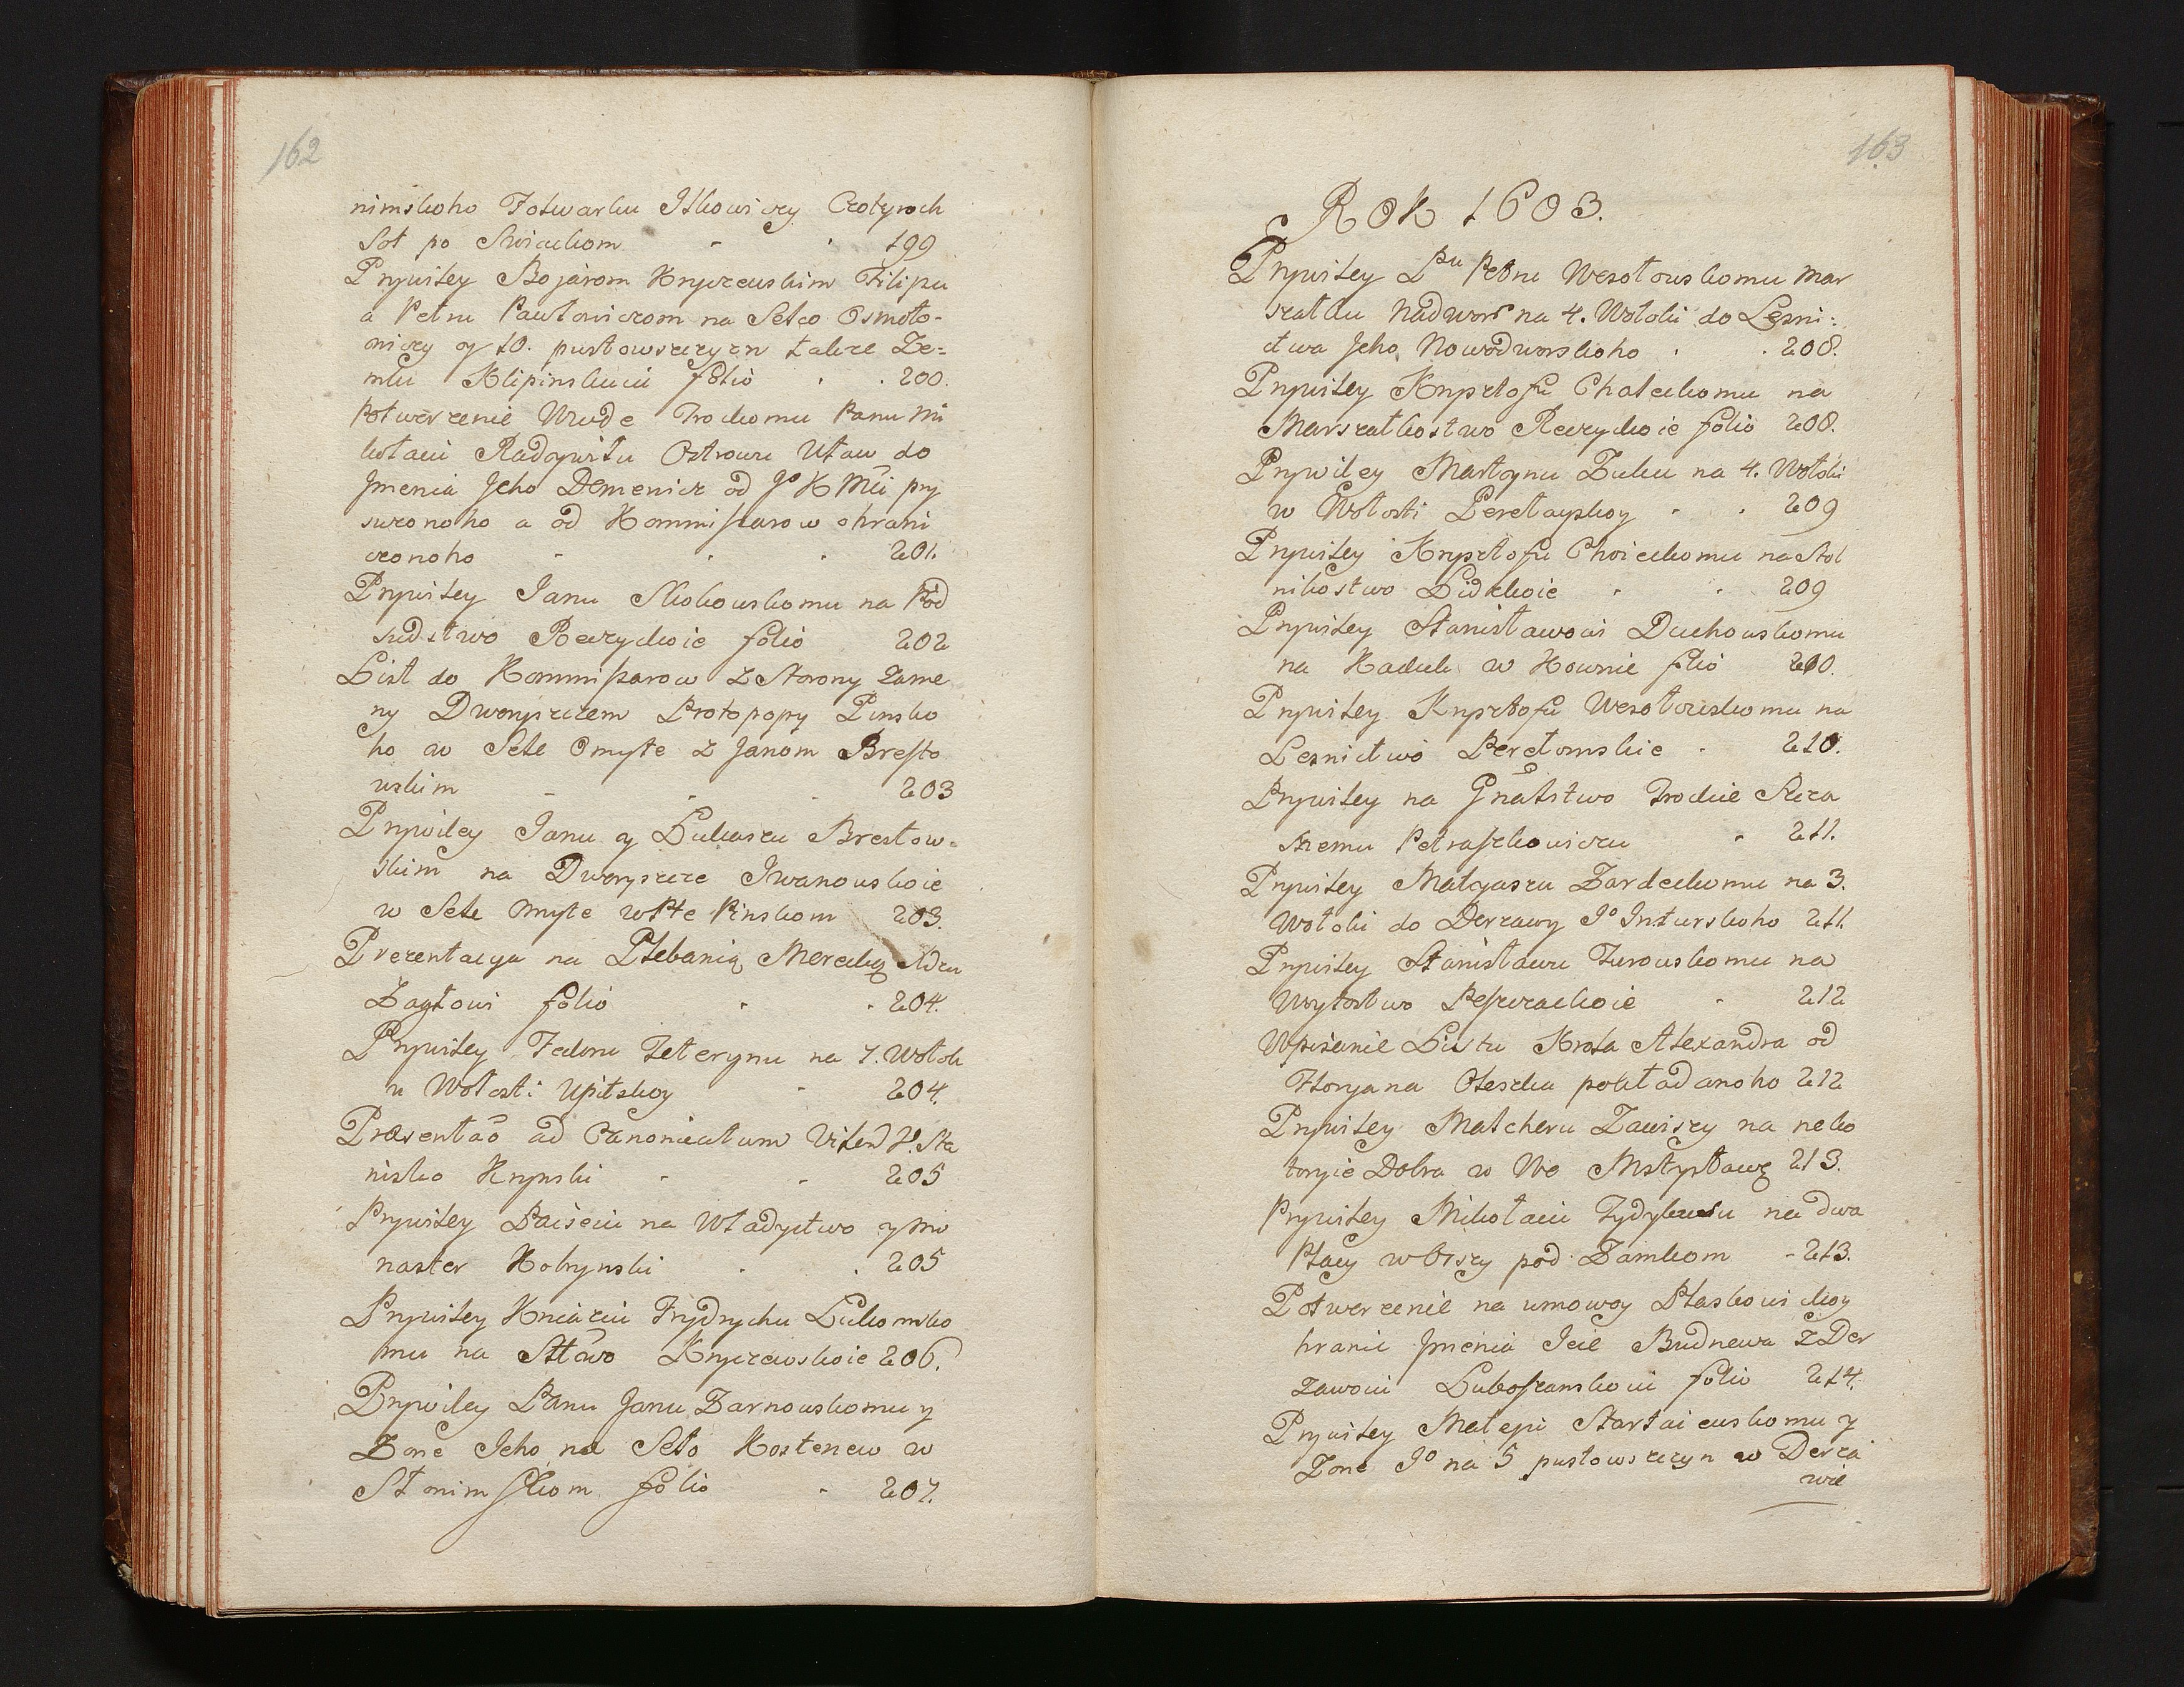 162
nimskoho Folwarku Itkowiczy Czotyroch
Sot po Swiackom 199
Prywiley Bojarom Kryczeuskim Filipu
a Petru Pawłowiczom na Seło Osmoło-
wiczy y 10. pustowszczyzn także Ze-
mlu Klipinskuiu folio 200.
Potwerzenie Wwode Trockomu Panu Mi
kołaiu Radzywiłu Ostrowu Utaw do
Jmenia Jeho Demenicz od Jo K Mti pry
suzonoho a od Kommissarow ohrani
czonoho 201.
Prywiley Janu Skokouskomu na Pod
sudstwo Reczyckoie folio 202
List do Kommissarow z Storony Zame
ny Dworyszczem Protopopy Pinsko
ho w Sele Omyte z Janom Bresto
wskim 203
Prywiley Janu y Lukaszu Brestow-
skim na Dworyszcze Iwanouskoie
w Sele Omyte w Pte Pinskom 203.
Prezentacya na Plebanią Merecką Xdzu
Zaytowi folio 204.
Prywiley Fedoru Teterynu na 7. Wołok
u Wołosti Upitskoy 204.
Præsentao ad Canonicatum Vilen V. Sta
nisło Krynski 205
Prywiley Paiseiu na Władyctwo y Mo
naster Kobrynski 205
Prywiley Kniaziu Frydrychu Lukomsko
mu na Sttwo Kryczewskoie 206.
Prywiley Panu Janu Zarnouskomu y
Zone Jeho na Seło Kostenew w
Słonimskom folio 207.
163
ROK 1603.
Prywiley Pnu Petru Wesołouskomu Mar
szałku Nadwor na 4. Wołoki do Lesni:
ctwa Jeho Nowodworskoho 208.
Prywiley Krysztofu Chaleckomu na
Marszałkostwo Reczyckoie folio 208.
Prywiley Martynu Zuku na 4. Wołoki
w Wołosti Perełayskoy 209
Prywiley Krysztofu Chwieckomu na Stol
nikostwo Lidzkoie 209
Prywiley Stanisławowi Duchouskomu
na Kaduk w Kownie flio 210.
Prywiley Krysztofu Wesołouskomu na
Lesnictwo Perełomskie 210.
Prywiley na Ciunstwo Trockie Szcza
snemu Petraszkowiczu 211.
Prywiley Matyaszu Zardeckomu na 3.
Wołoki do Derzawy Jo Inturskoho 211.
Prywiley Stanisławu Turouskomu na
Woytostwo Peszczackoie 212
Wpisanie Listu Krola Alexandra od
Floryana Oleszka pokładanoho 212
Prywiley Malcheru Zawiszy na neko
toryie Dobra w Wo Mstysławę 213.
Prywiley Mikołaiu Tydykusu na dwa
Płacy w Orszy pod Zamkom 213.
Potwerzenie na umowoy Płaskowickoy
hranic Jmenia Jeie Budnewa z Der
zawoiu Luboszanskoiu folio 214.
Prywiley Mateju Startaieuskomu y
Zone Jo na 5 pustowszczyn w Derza
wie